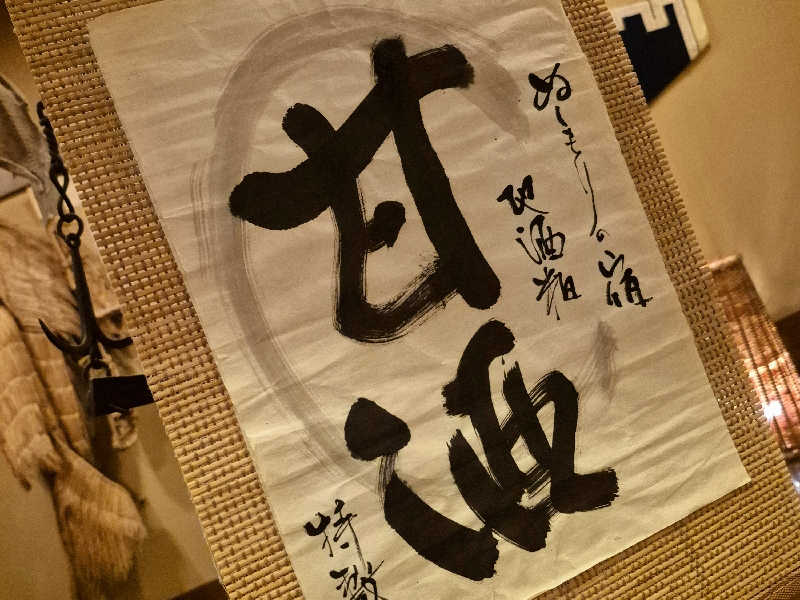 ぬくもりの宿
地酒粕
甘酒
特製